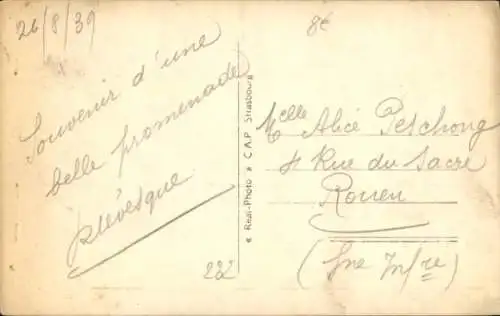 26/8/39
8€
Souvenir d'une
belle promenade
plévesque
« Real-Photo » C A P Strasbourg
Melle Alice Peschong
4 Rue du Sacre
Rouen
(Sne Infre)
232